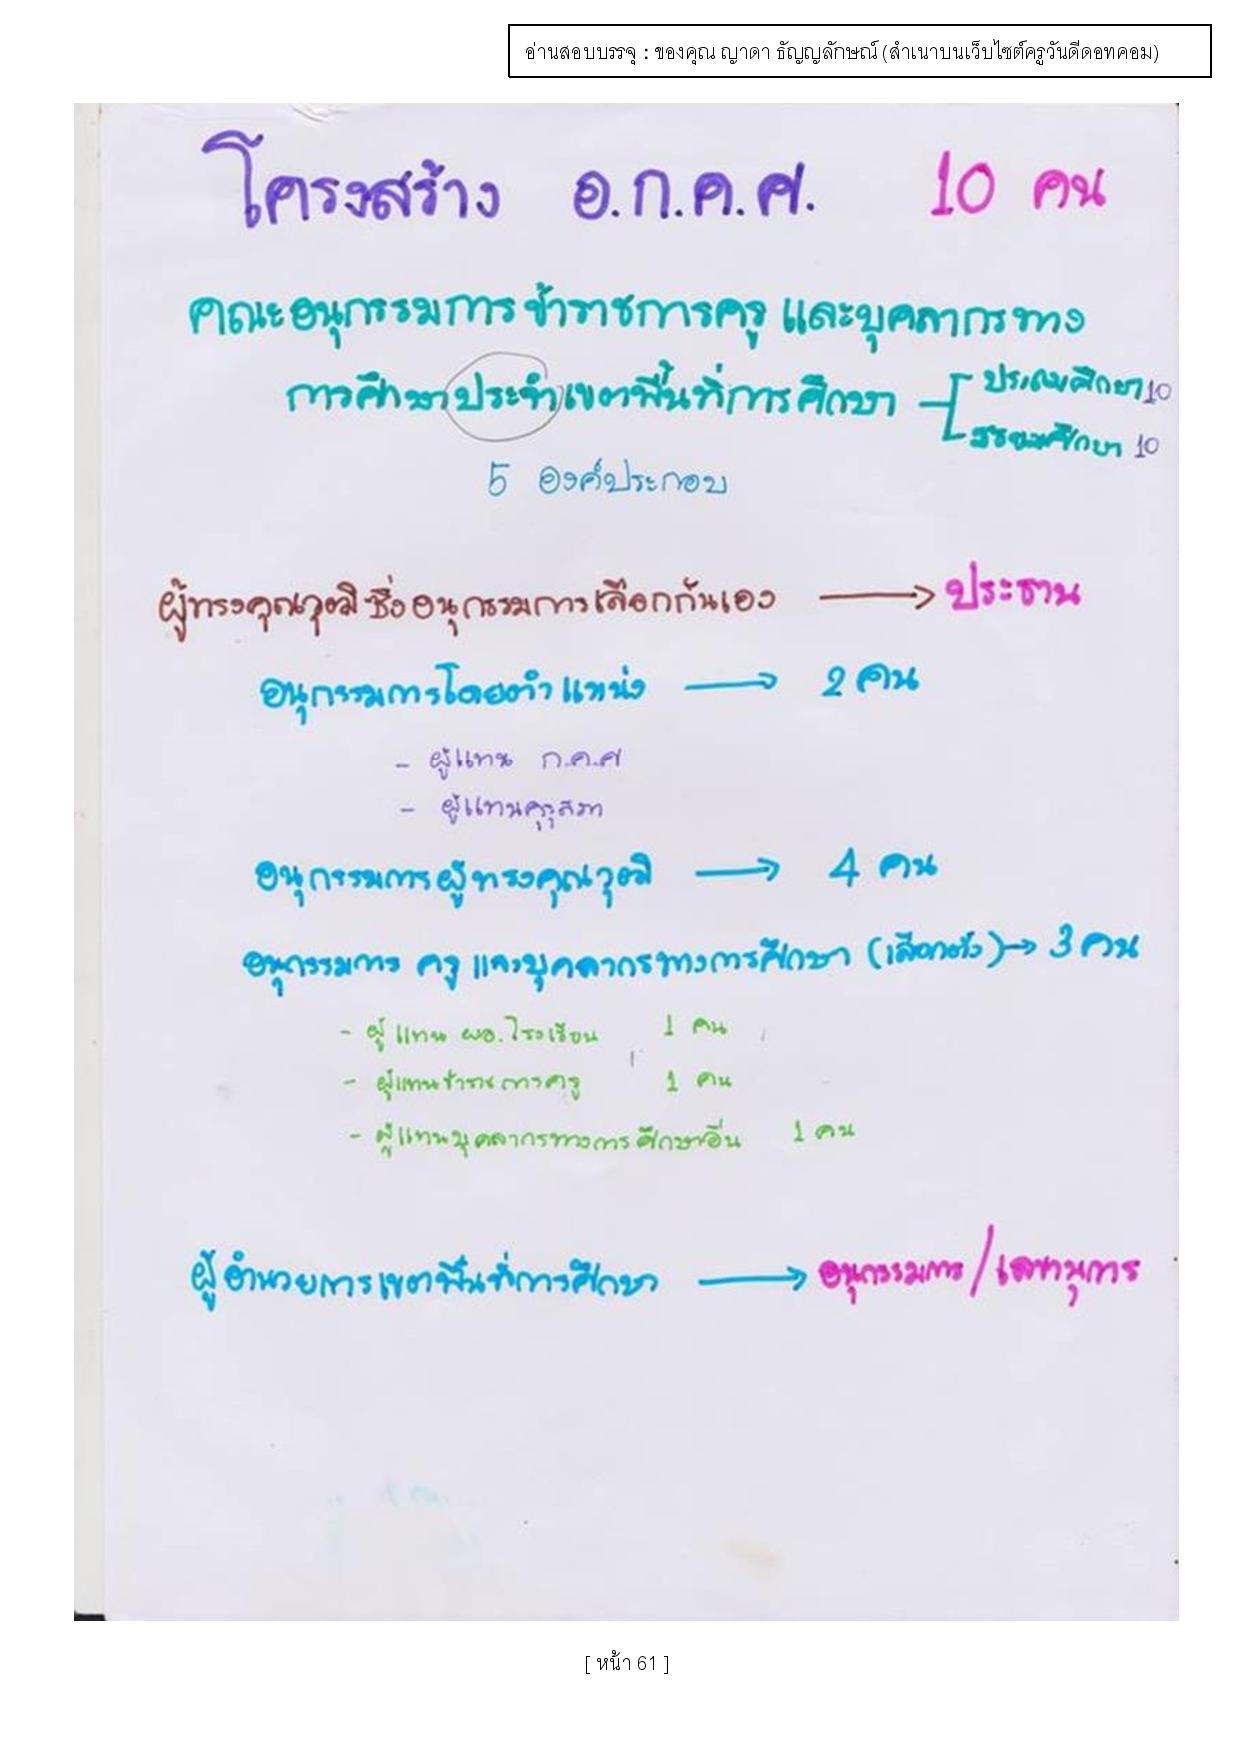 อ่านสอบบรรจุ : ของคุณ ญาดา ธัญญลักษณ์ (สำเนาบนเว็บไซต์ครูวันดีดอทคอม)
โครงสร้าง อ.ก.ค.ศ. 10 คน
คณะอนุกรรมการข้าราชการครูและบุคลากรทาง
การศึกษาประจำเขตพื้นที่การศึกษา
ประถมศึกษา 10
มัธยมศึกษา 10
5 องค์ประกอบ
ผู้ทรงคุณวุฒิซึ่งอนุกรรมการเลือกกันเอง → ประธาน
อนุกรรมการโดยตำแหน่ง → 2 คน
- ผู้แทน ก.ค.ศ
- ผู้แทนคุรุสภา
อนุกรรมการผู้ทรงคุณวุฒิ → 4 คน
อนุกรรมการ ครูและบุคลากรทางการศึกษา (เลือกตั้ง) → 3 คน
- ผู้แทน ผอ.โรงเรียน 1 คน
- ผู้แทนข้าราชการครู 1 คน
- ผู้แทนบุคลากรทางการศึกษาอื่น 1 คน
ผู้อำนวยการเขตพื้นที่การศึกษา → อนุกรรมการ/เลขานุการ
[ หน้า 61 ]